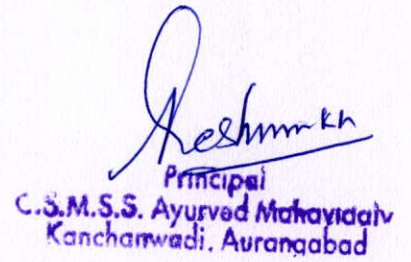 Deshmukh
Principal
C.S.M.S.S. Ayurved Mahavidalv
Kanchanwadi, Aurangabad